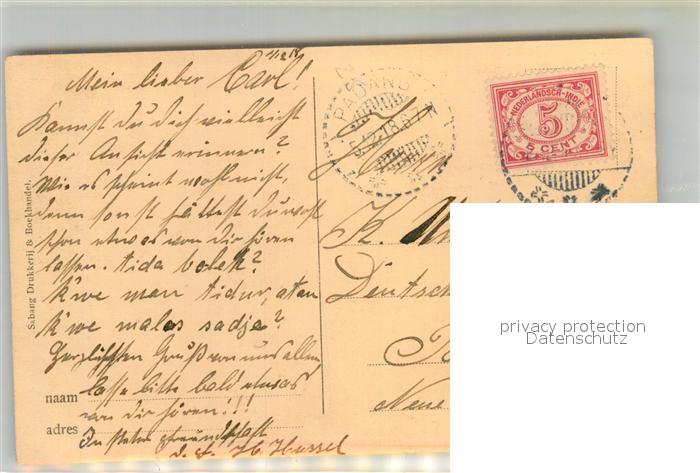 11.2.18
Mein lieber Carl!
Kannst du dich vielleicht
dieser Ansicht erinnern?
Wie es scheint wohl nicht,
denn sonst hättest du wohl
schon etwas von dir hören
lassen. tida boleh?
k'we mau tidur, atau
k'we malas sadja?
Herzlichsten Gruß von uns allen
lasse bitte bald etwas
von dir hören!!!
In steter Freundschaft
H. Hussel
naam
adres
Sabang Drukkerij & Boekhandel.
PADANG
NEDERLANDSCH-INDIË
5
5 CENT
Herrn
K.
Deutsch
Neue
privacy protection
Datenschutz